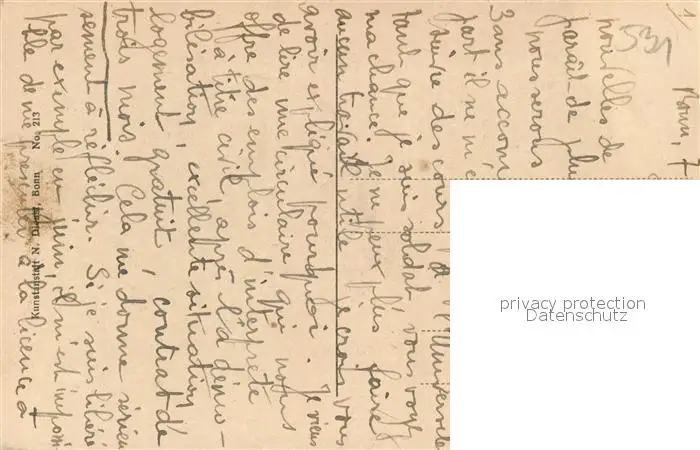 1
Bonn, 7
535
nouvelles de
paraît de plu
nous serons
3 ans accom
part il ne m'e
suivre des cours à l'Université
tant que je suis soldat vous voy
ma chance. Je ne peux plus faire
aucun travail utile je crois vous
avoir expliqué pourquoi. Je viens
de lire une circulaire qui nous
offre des emplois d'interprète
à titre civil, après la démo-
bilisation, excellente situation,
logement gratuit, contrat de
trois mois. Cela me donne sérieu
sement à réfléchir. Si je suis libéré
par exemple en juin, il m'est impossi
ble de me présenter à la licence à
Kunstanstalt N. Bonn No. 213
privacy protection
Datenschutz